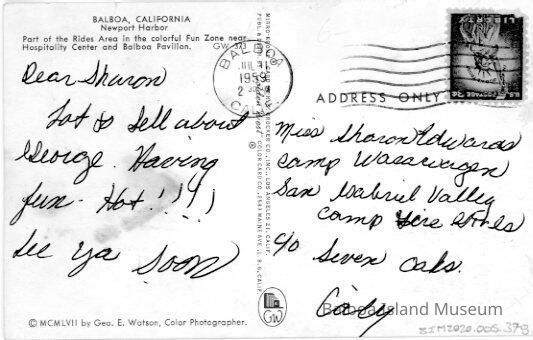 BALBOA, CALIFORNIA
Newport Harbor
Part of the Rides Area in the colorful Fun Zone near
Hospitality Center and Balboa Pavilion. GW 373
Dear Sharon
Lot to tell about
George. Having
fun - Hot!!!!
See ya soon
© MCMLVII by Geo. E. Watson, Color Photographer.
BALBOA
JUL 31
1959
CALIF
LIBERTY
U.S. POSTAGE 3¢
ADDRESS ONLY
Miss Sharon Edwards
Camp
San Gabriel Valley
Camp Girls
c/o Seven Oaks.
Calif
GW
Balboa Island Museum
BIM2020.005.378